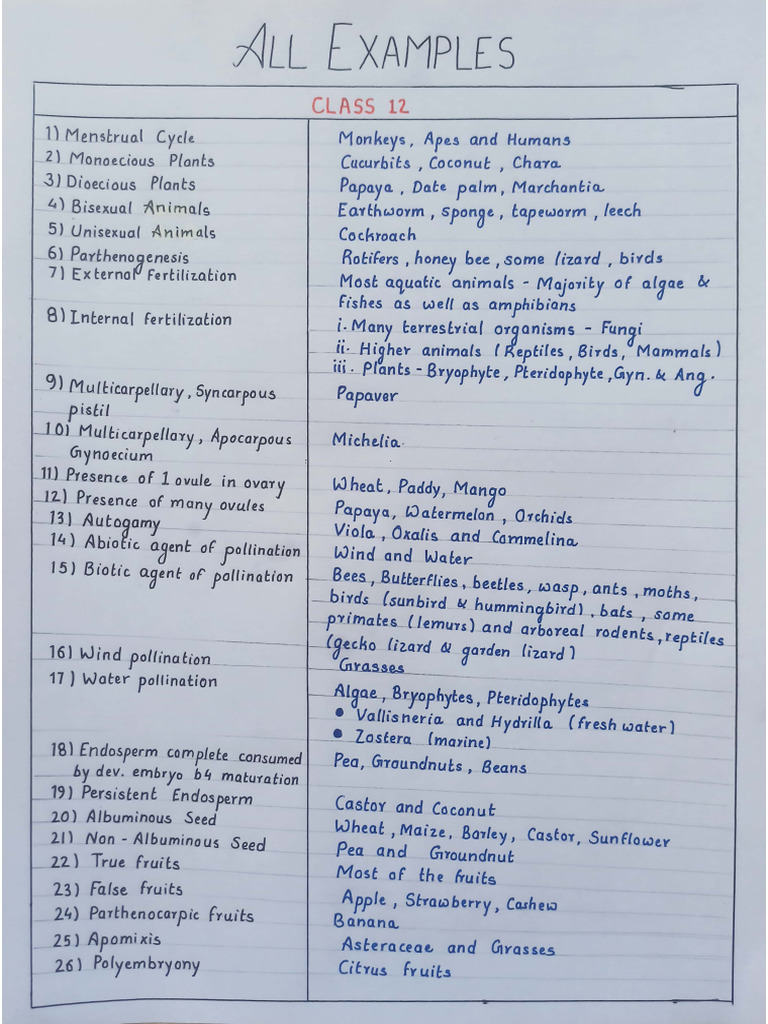 ALL EXAMPLES
CLASS 12
1) Menstrual Cycle
Monkeys, Apes and Humans
2) Monoecious Plants
Cucurbits, Coconut, Chara
3) Dioecious Plants
Papaya, Date palm, Marchantia
4) Bisexual Animals
Earthworm, sponge, tapeworm, leech
5) Unisexual Animals
Cockroach
6) Parthenogenesis
Rotifers, honey bee, some lizard, birds
7) External Fertilization
Most aquatic animals - Majority of algae &
fishes as well as amphibians
8) Internal fertilization
i. Many terrestrial organisms - Fungi
ii. Higher animals (Reptiles, Birds, Mammals)
iii. Plants - Bryophyte, Pteridophyte, Gyn. & Ang.
9) Multicarpellary, Syncarpous
pistil
Papaver
10) Multicarpellary, Apocarpous
Gynoecium
Michelia.
11) Presence of 1 ovule in ovary
Wheat, Paddy, Mango
12) Presence of many ovules
Papaya, Watermelon, Orchids
13) Autogamy
Viola, Oxalis and Commelina
14) Abiotic agent of pollination
Wind and Water
15) Biotic agent of pollination
Bees, Butterflies, beetles, wasp, ants, moths,
birds (sunbird & hummingbird), bats, some
primates (lemurs) and arboreal rodents, reptiles
(gecko lizard & garden lizard)
16) Wind pollination
Grasses
17) Water pollination
Algae, Bryophytes, Pteridophytes
• Vallisneria and Hydrilla (fresh water)
• Zostera (marine)
18) Endosperm complete consumed
by dev. embryo b4 maturation
Pea, Groundnuts, Beans
19) Persistent Endosperm
Castor and Coconut
20) Albuminous Seed
Wheat, Maize, Barley, Castor, Sunflower
21) Non-Albuminous Seed
Pea and Groundnut
22) True fruits
Most of the fruits
23) False fruits
Apple, Strawberry, Cashew
24) Parthenocarpic fruits
Banana
25) Apomixis
Asteraceae and Grasses
26) Polyembryony
Citrus fruits